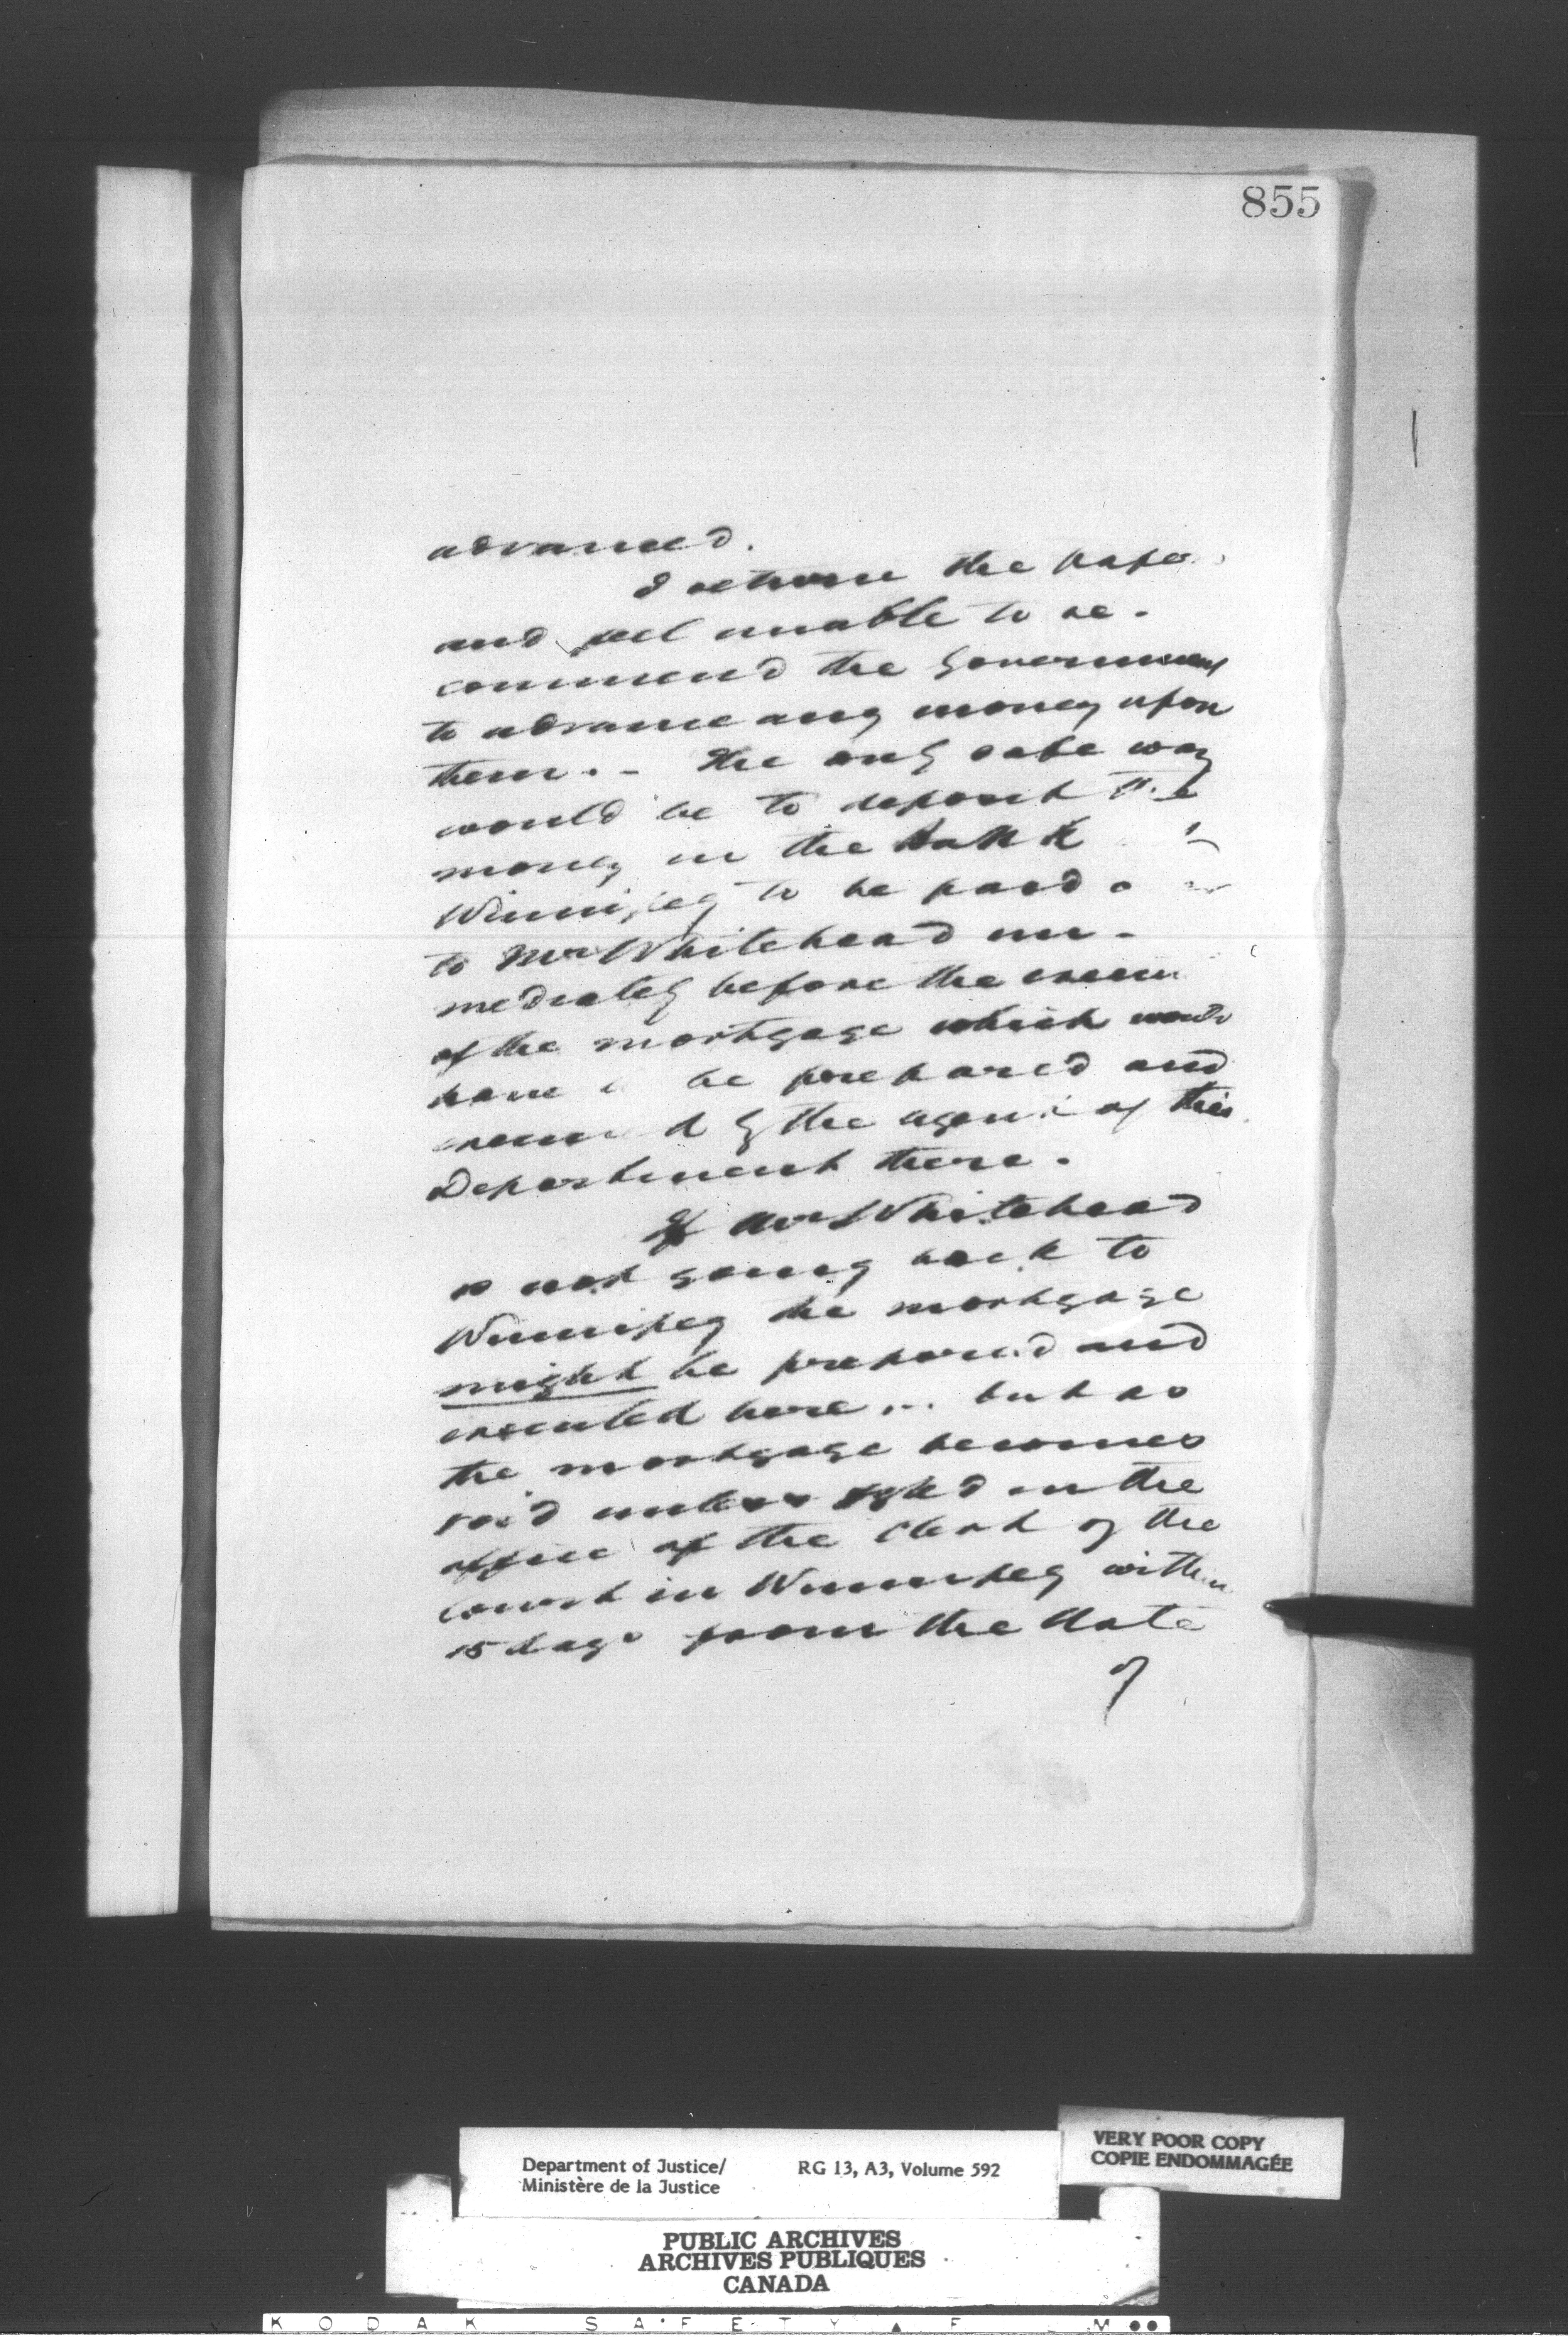 855
advanced.
I return the papers
and feel unable to re-
commend the Government
to advance any money upon
them. - The only safe way
would be to deposit the
money in the bank
Winnipeg to be paid
to Mr Whitehead im-
mediately before the
of the mortgage which would
have be prepared and
by the agent of this
Department there.
If Mr Whitehead
is not going back to
Winnipeg the mortgage
might be prepared and
executed here... but as
the mortgage becomes
void unless filed in the
office of the Clerk of the
court in Winnipeg within
15 days from the date
of
Department of Justice/
Ministère de la Justice
RG 13, A3, Volume 592
VERY POOR COPY
COPIE ENDOMMAGÉE
PUBLIC ARCHIVES
ARCHIVES PUBLIQUES
CANADA
KODAK SAFETY